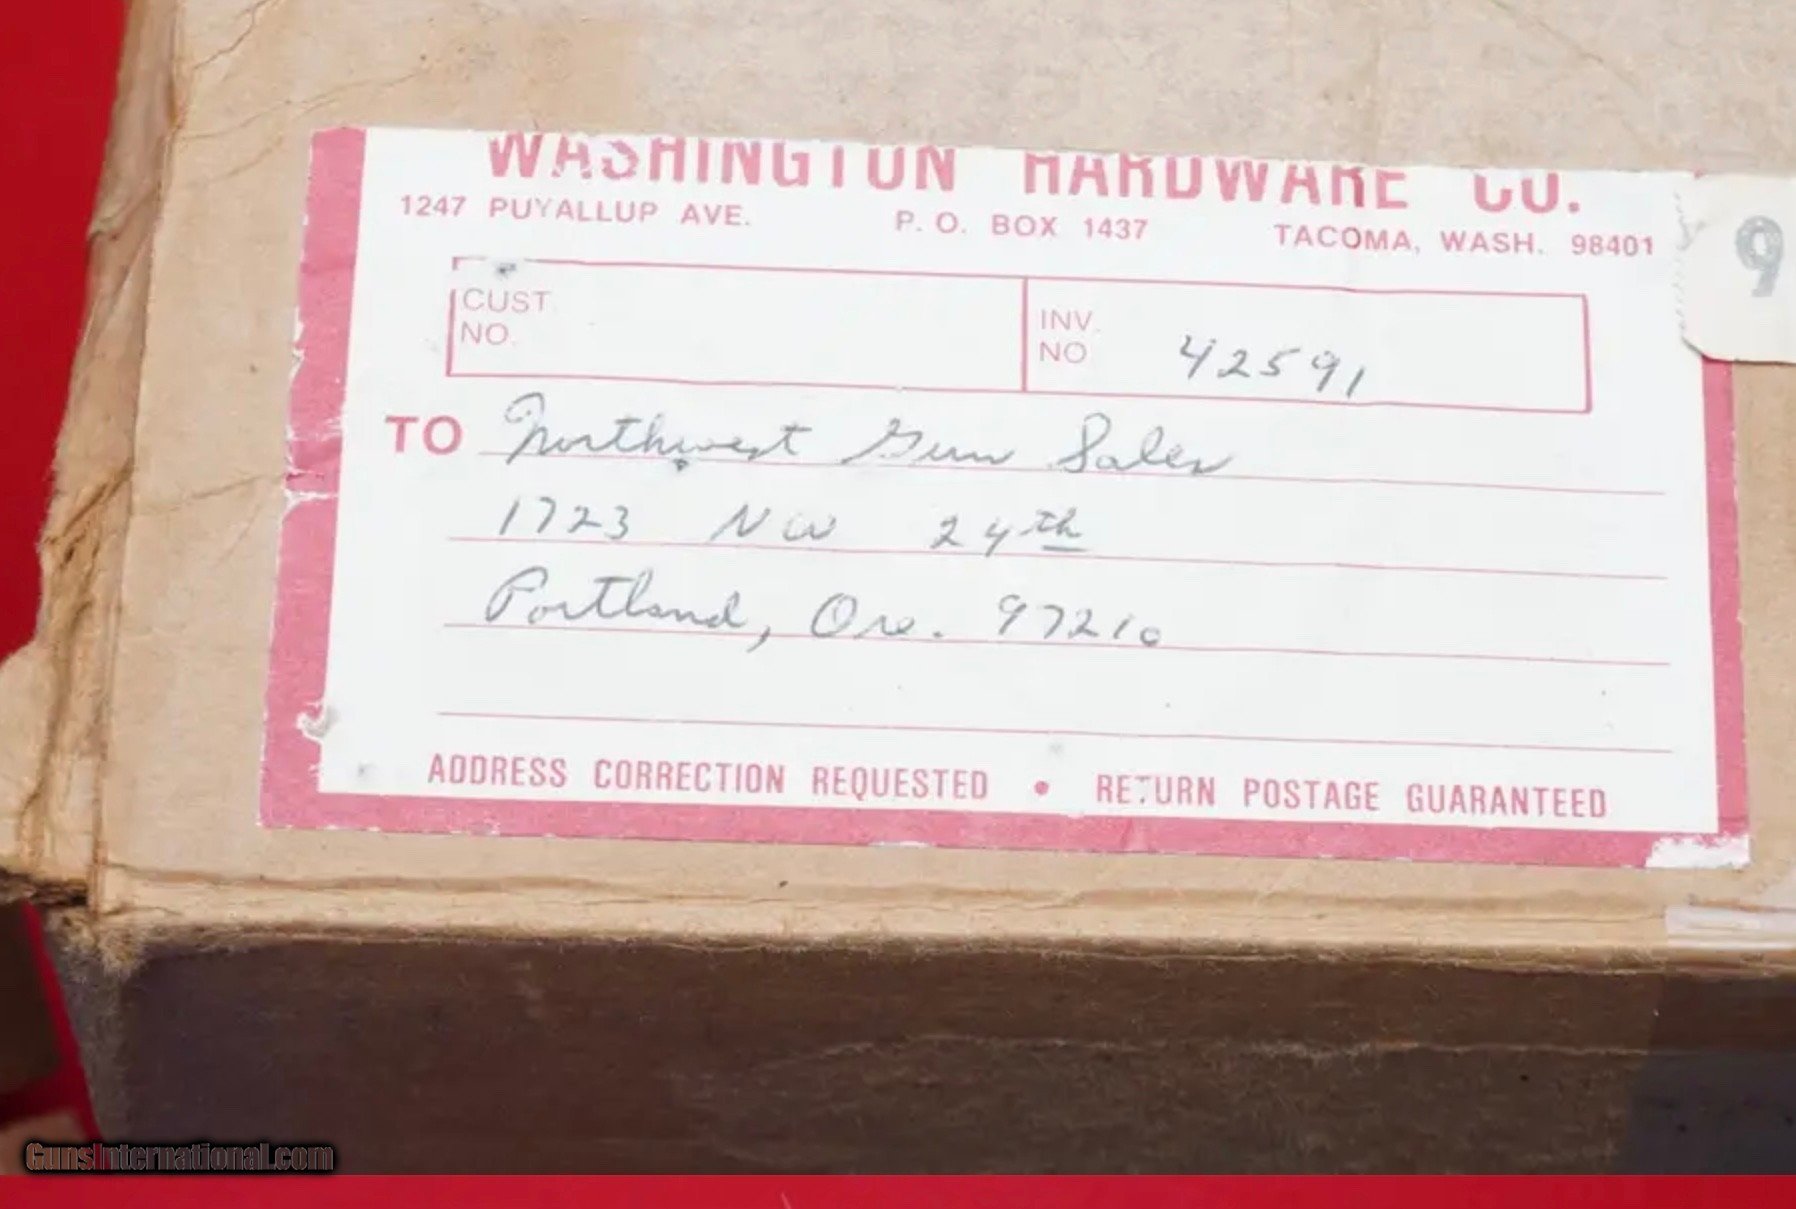 WASHINGTON HARDWARE CO.
1247 PUYALLUP AVE. P. O. BOX 1437 TACOMA, WASH. 98401
9
CUST. NO.
INV. NO 42591
TO Northwest Gun Sales
1723 NW 24th
Portland, Ore. 97210
ADDRESS CORRECTION REQUESTED • RETURN POSTAGE GUARANTEED
GunsInternational.com